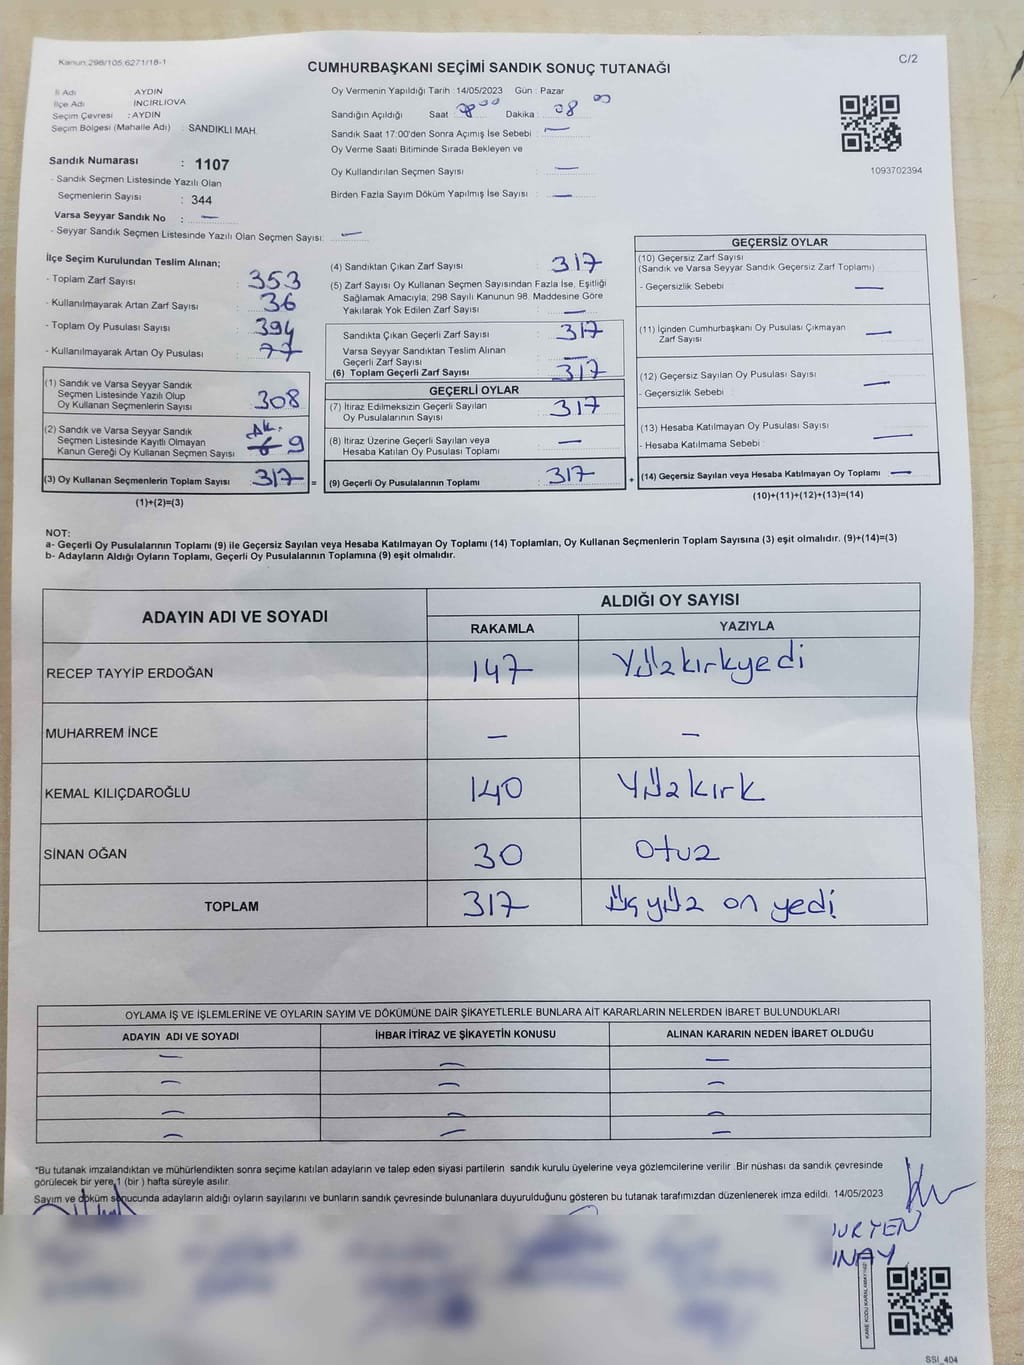 Kanun:298/105;6271/18-1
C/2
CUMHURBAŞKANI SEÇİMİ SANDIK SONUÇ TUTANAĞI
İl Adı AYDIN
İlçe Adı İNCİRLİOVA
Seçim Çevresi : AYDIN
Seçim Bölgesi (Mahalle Adı) : SANDIKLI MAH.
Oy Vermenin Yapıldığı Tarih : 14/05/2023 Gün : Pazar
Sandığın Açıldığı Saat : 08 00 Dakika : 08 00
Sandık Saat 17:00'den Sonra Açımış İse Sebebi : —
Oy Verme Saati Bitiminde Sırada Bekleyen ve
Oy Kullandırılan Seçmen Sayısı : —
Birden Fazla Sayım Döküm Yapılmış İse Sayısı : —
1093702394
Sandık Numarası : 1107
- Sandık Seçmen Listesinde Yazılı Olan
Seçmenlerin Sayısı : 344
Varsa Seyyar Sandık No : —
- Seyyar Sandık Seçmen Listesinde Yazılı Olan Seçmen Sayısı: —
İlçe Seçim Kurulundan Teslim Alınan;
- Toplam Zarf Sayısı : 353
- Kullanılmayarak Artan Zarf Sayısı : 36
- Toplam Oy Pusulası Sayısı : 394
- Kullanılmayarak Artan Oy Pusulası : 77
(1) Sandık ve Varsa Seyyar Sandık
Seçmen Listesinde Yazılı Olup
Oy Kullanan Seçmenlerin Sayısı : 308
(2) Sandık ve Varsa Seyyar Sandık
Seçmen Listesinde Kayıtlı Olmayan
Kanun Gereği Oy Kullanan Seçmen Sayısı : 9
(3) Oy Kullanan Seçmenlerin Toplam Sayısı : 317 =
(1)+(2)=(3)
(4) Sandıktan Çıkan Zarf Sayısı : 317
(5) Zarf Sayısı Oy Kullanan Seçmen Sayısından Fazla İse, Eşitliği
Sağlamak Amacıyla; 298 Sayılı Kanunun 98. Maddesine Göre
Yakılarak Yok Edilen Zarf Sayısı : —
Sandıkta Çıkan Geçerli Zarf Sayısı : 317
Varsa Seyyar Sandıktan Teslim Alınan
Geçerli Zarf Sayısı : —
(6) Toplam Geçerli Zarf Sayısı : 317
GEÇERLİ OYLAR
(7) İtiraz Edilmeksizin Geçerli Sayılan
Oy Pusulalarının Sayısı : 317
(8) İtiraz Üzerine Geçerli Sayılan veya
Hesaba Katılan Oy Pusulası Toplamı : —
(9) Geçerli Oy Pusulalarının Toplamı : 317 +
GEÇERSİZ OYLAR
(10) Geçersiz Zarf Sayısı
(Sandık ve Varsa Seyyar Sandık Geçersiz Zarf Toplamı)
- Geçersizlik Sebebi : —
(11) İçinden Cumhurbaşkanı Oy Pusulası Çıkmayan
Zarf Sayısı : —
(12) Geçersiz Sayılan Oy Pusulası Sayısı
- Geçersizlik Sebebi : —
(13) Hesaba Katılmayan Oy Pusulası Sayısı
- Hesaba Katılmama Sebebi : —
(14) Geçersiz Sayılan veya Hesaba Katılmayan Oy Toplamı : —
(10)+(11)+(12)+(13)=(14)
NOT:
a- Geçerli Oy Pusulalarının Toplamı (9) ile Geçersiz Sayılan veya Hesaba Katılmayan Oy Toplamı (14) Toplamları, Oy Kullanan Seçmenlerin Toplam Sayısına (3) eşit olmalıdır. (9)+(14)=(3)
b- Adayların Aldığı Oyların Toplamı, Geçerli Oy Pusulalarının Toplamına (9) eşit olmalıdır.
ADAYIN ADI VE SOYADI ALDIĞI OY SAYISI
RAKAMLA YAZIYLA
RECEP TAYYİP ERDOĞAN 147 Yüzkırkyedi
MUHARREM İNCE — —
KEMAL KILIÇDAROĞLU 140 Yüzkırk
SİNAN OĞAN 30 Otuz
TOPLAM 317 üçyüz on yedi
OYLAMA İŞ VE İŞLEMLERİNE VE OYLARIN SAYIM VE DÖKÜMÜNE DAİR ŞİKAYETLERLE BUNLARA AİT KARARLARIN NELERDEN İBARET BULUNDUKLARI
ADAYIN ADI VE SOYADI İHBAR İTİRAZ VE ŞİKAYETİN KONUSU ALINAN KARARIN NEDEN İBARET OLDUĞU
— — —
— — —
— — —
— — —
*Bu tutanak imzalandıktan ve mühürlendikten sonra seçime katılan adayların ve talep eden siyasi partilerin sandık kurulu üyelerine veya gözlemcilerine verilir .Bir nüshası da sandık çevresinde
görülecek bir yere,1 (bir ) hafta süreyle asılır.
Sayım ve döküm sonucunda adayların aldığı oyların sayılarını ve bunların sandık çevresinde bulunanlara duyurulduğunu gösteren bu tutanak tarafımızdan düzenlenerek imza edildi. 14/05/2023
KARE KODU KARALAMAYINIZ!
SSI_404